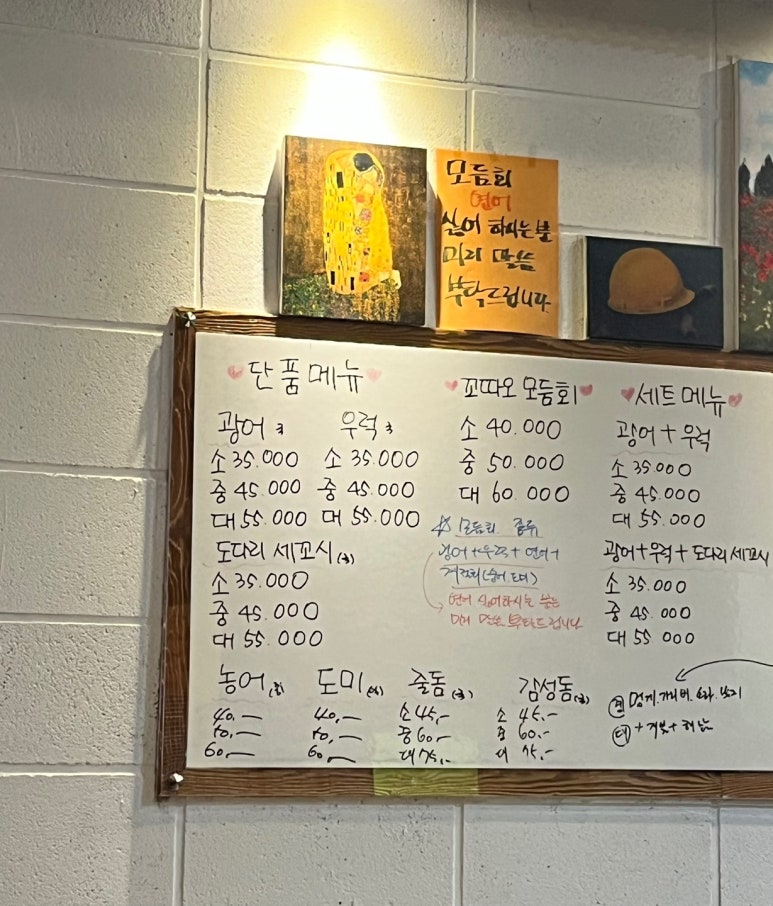 모듬회
연어
싫어 하시는분
미리 말씀
부탁드립니다
단품메뉴
광어
소 35.000
중 45.000
대 55.000
우럭
소 35.000
중 45.000
대 55.000
도다리 세꼬시
소 35.000
중 45.000
대 55.000
농어
40,—
50,—
60,—
도미
40,—
50,—
60,—
줄돔
소 45,-
중 60-
대 75,-
감성돔
소 45.-
중 60.-
대 75.-
꼬따오 모듬회
소 40.000
중 50.000
대 60.000
모듬회 종류
광어+우럭+연어+
연어 싫어하시는 분은
미리 말씀 부탁드립니다
세트메뉴
광어+우럭
소 35000
중 45.000
대 55.000
광어+우럭+도다리세꼬시
소 35.000
중 45.000
대 55 000
멍게.
대